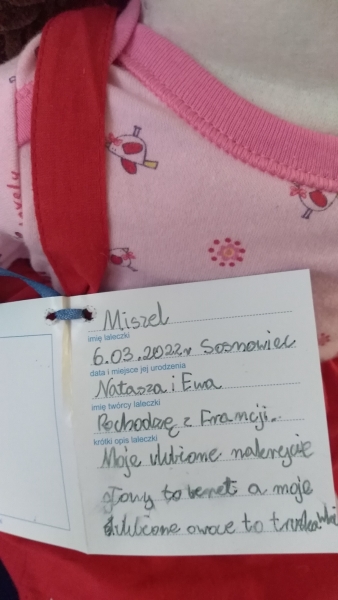 lovely
Miszel
imię laleczki
6.03.2022r Sosnowiec
data i miejsce jej urodzenia
Natasza i Ewa
imię twórcy laleczki
Pochodzę z Francji.
krótki opis laleczki
Moje ulubione nakrycie
głowy to beret a moje
ulubione owoce to truskawki